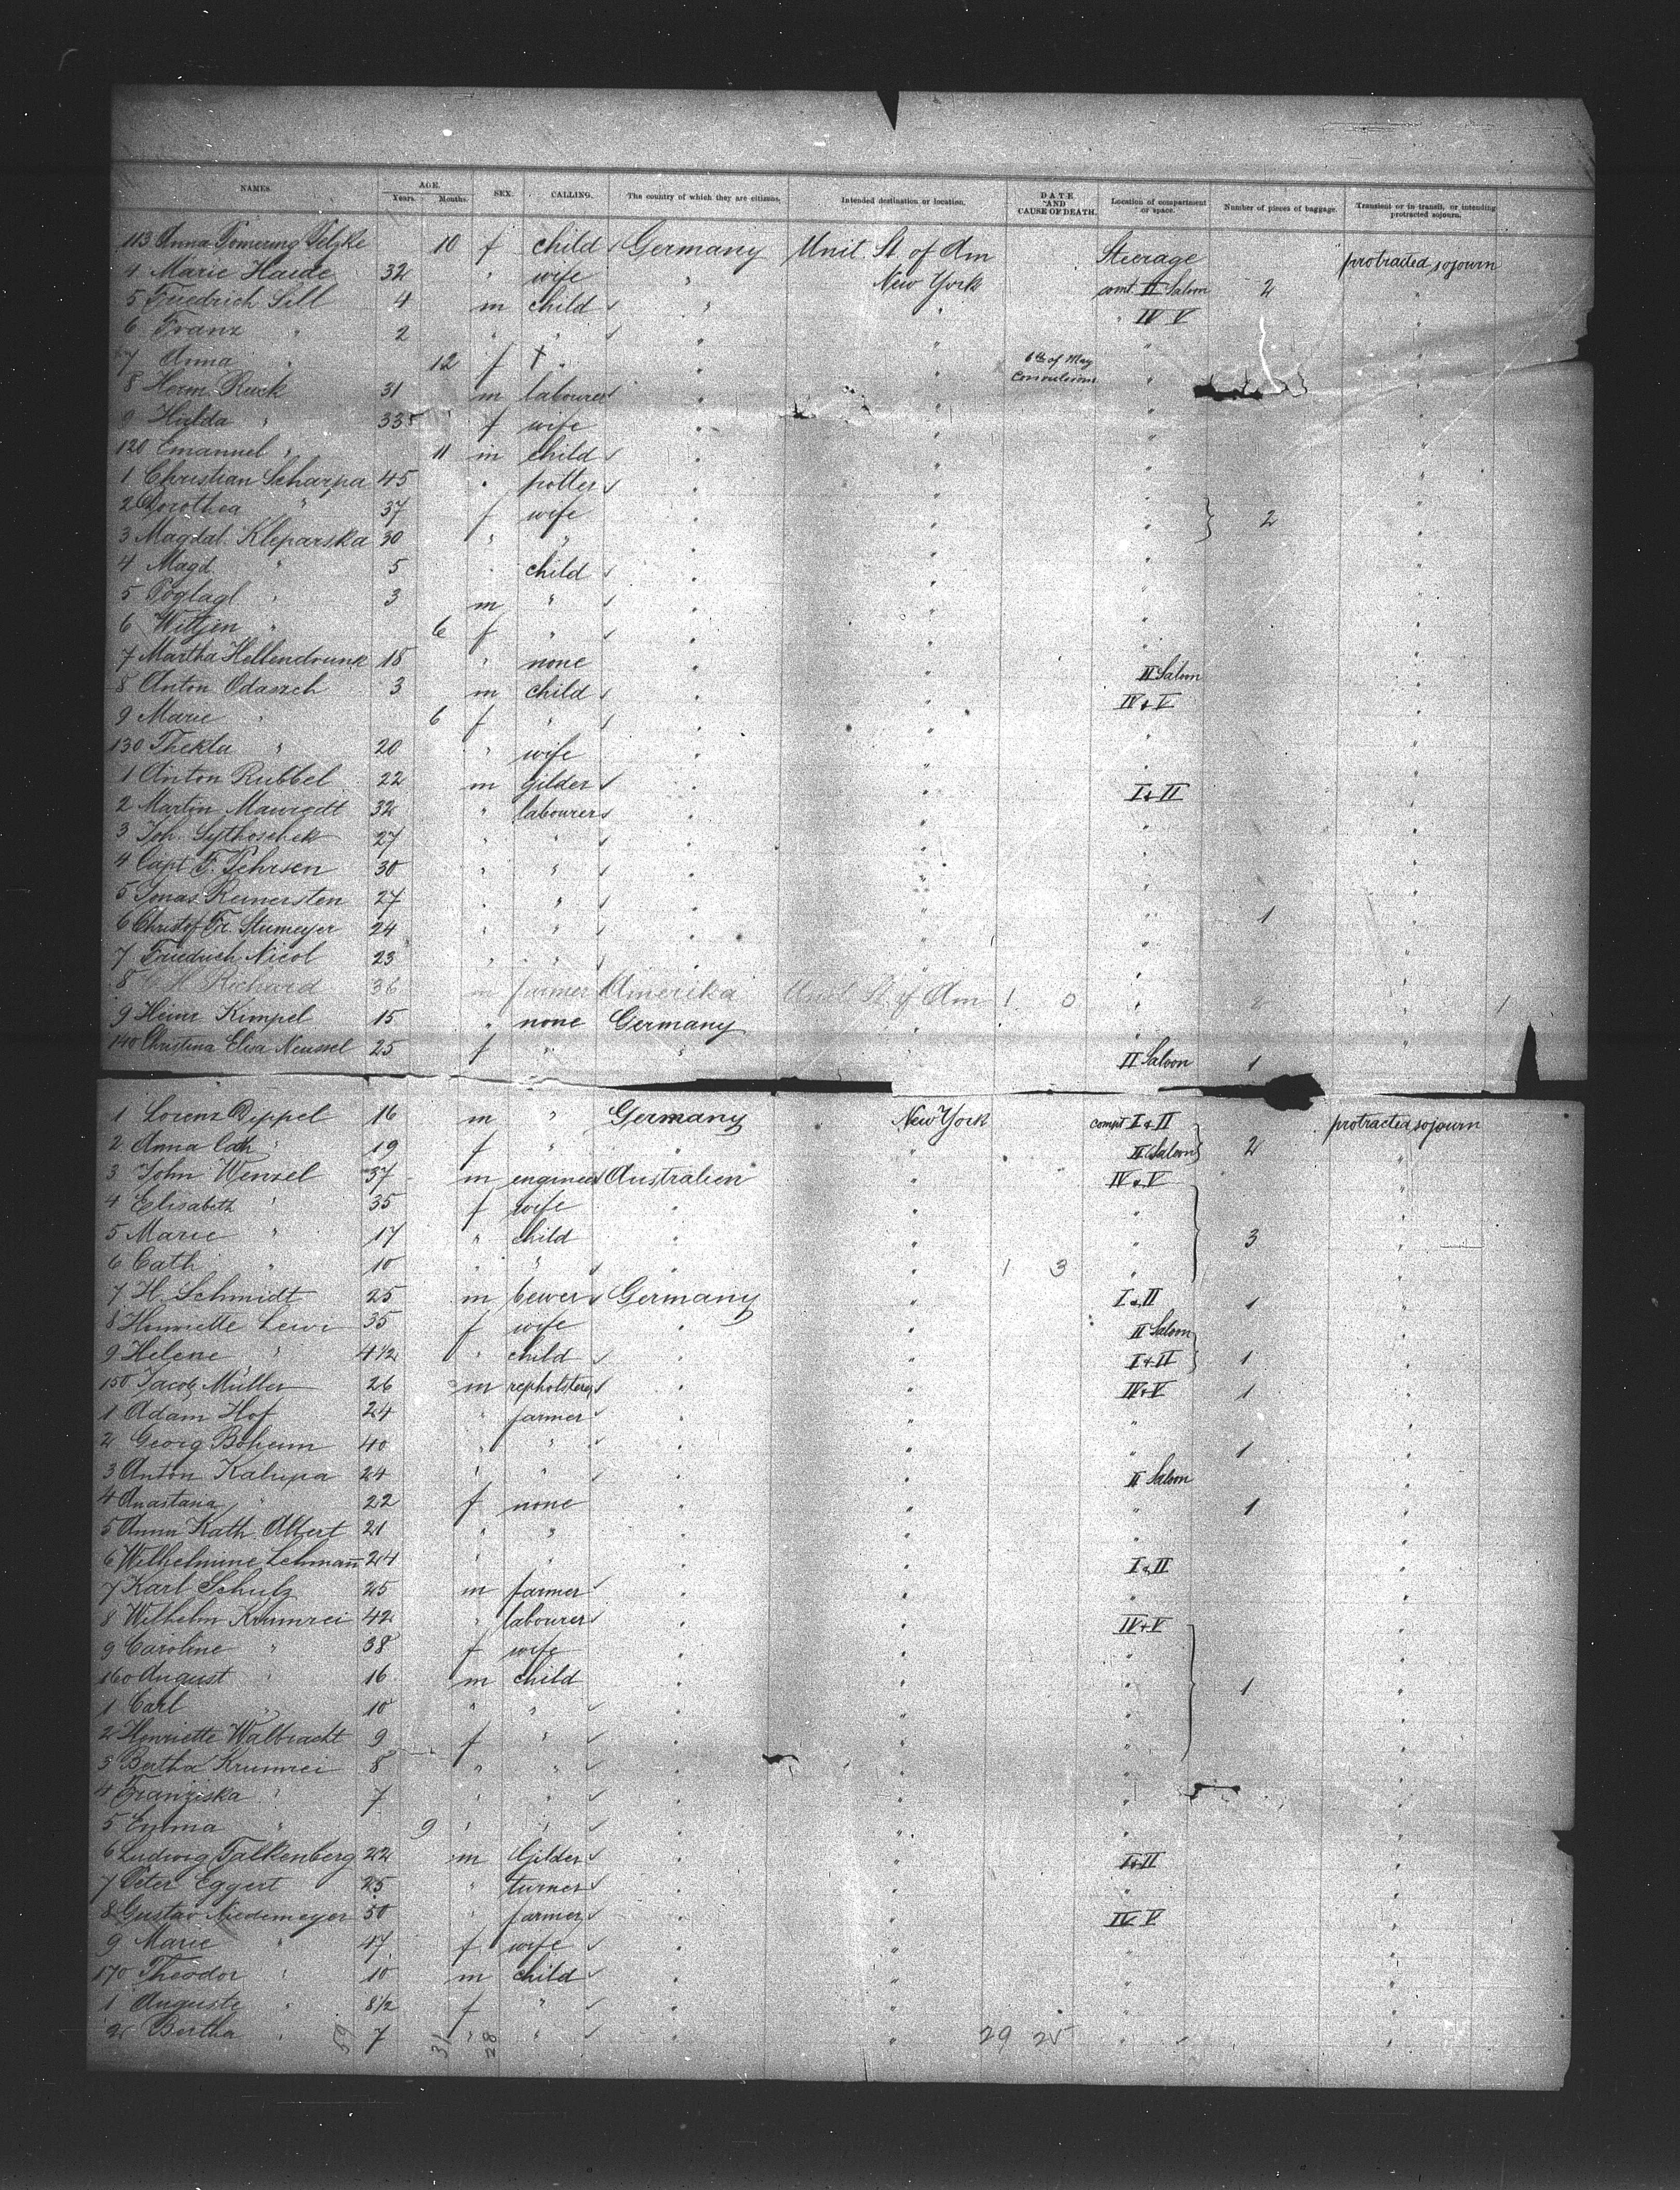 NAMES. AGE. Years. Months. SEX. CALLING. The country of which they are citizens. Intended destination or location. DATE AND CAUSE OF DEATH. Location of compartment or space. Number of pieces of baggage. Transient or in transit, or intending protracted sojourn.
113 Anna Pomering 10 f child Germany Unit. St. of Am Steerage protracted sojourn
4 Marie Haide 32 " wife " New York comt. II Saloon 2 "
5 Friedrich Sill 4 m child " " " IV V "
6 Franz " 2 " " " " " "
7 Anna " 12 f † " " " 6th of May " "
8 Herm. Ruck 31 m labourer " " " "
9 Hulda " 33 f wife " " " "
120 Emanuel " 11 m child " " " "
1 Christian Scharpa 45 " potter " " " "
2 Dorothea " 37 f wife " " " 2 "
3 Magdal. Kleparska 30 " " " " " "
4 Magd. " 5 " child " " " "
5 " 3 m " " " " "
6 " 6 f " " " " "
7 Martha Hellendrunk 18 " none " " II Saloon "
8 Anton Odaszch 3 m child " " IV + V "
9 Marie " 6 f " " " " "
130 Thekla " 20 " wife " " " "
1 Anton Rubbel 22 m gilder " " I + II "
2 Martin 32 " labourer " " " "
3 Joh. 27 " " " " " "
4 Capt. F. Fehrsen 30 " " " " " "
5 Jonas Reinersten 27 " " " " " 1 "
6 Christof Fr. Stumeyer 24 " " " " " "
7 Friedrich Nicol 23 " " " " " "
8 Richard 36 m farmer Amerika Unit. St. of Am 1 0 " 2 1
9 Heinr. Kimpel 15 " none Germany " " "
140 Christina Elisa Neussel 25 f " " " II Saloon 1
1 Lorenz Deppel 16 m " Germany New York compt I + II protracted sojourn
2 Anna Cath " 19 f " " " II Saloon 2 "
3 John Wenzel 37 m engineer Australien " IV + V "
4 Elisabeth " 35 f wife " " " "
5 Marie " 17 " child " " " 3 "
6 Cath. " 10 " " " " 1 3 " "
7 H. Schmidt 25 m bewer Germany " I + II 1 "
8 Henriette Lewi 35 f wife " " II Saloon "
9 Helene " 4 1/2 " child " " I + II 1 "
150 Jacob Müller 26 m repholsterer " " IV + V 1 "
1 Adam Hof 24 " farmer " " " "
2 Georg Boheim 40 " " " " " 1 "
3 Anton Kalupa 24 " " " " II Saloon "
4 Anastana " 22 f none " " " 1 "
5 Anna Kath. Albert 21 " " " " " "
6 Wilhelmine Lehmann 24 " " " " I + II "
7 Karl Schulz 25 m farmer " " " "
8 Wilhelm Krumrei 42 " labourer " " IV + V "
9 Caroline " 38 f wife " " " "
160 August " 16 m child " " " 1 "
1 Carl " 10 " " " " " "
2 Henriette Walbracht 9 f " " " " "
3 Bertha Krumrei 8 " " " " " "
4 Franziska " 7 " " " " " "
5 Emma " 9 " " " " " "
6 Ludwig Falkenberg 22 m Gilder " " I + II "
7 Peter Eggert 25 " turner " " " "
8 Gustav Niedemeyer 50 " farmer " " IV V "
9 Marie " 47 f wife " " " "
170 Theodor " 10 m child " " " "
1 Auguste " 8 1/2 f " " " " "
2 Bertha " 59 7 31 " 28 " " " 29 25 " "